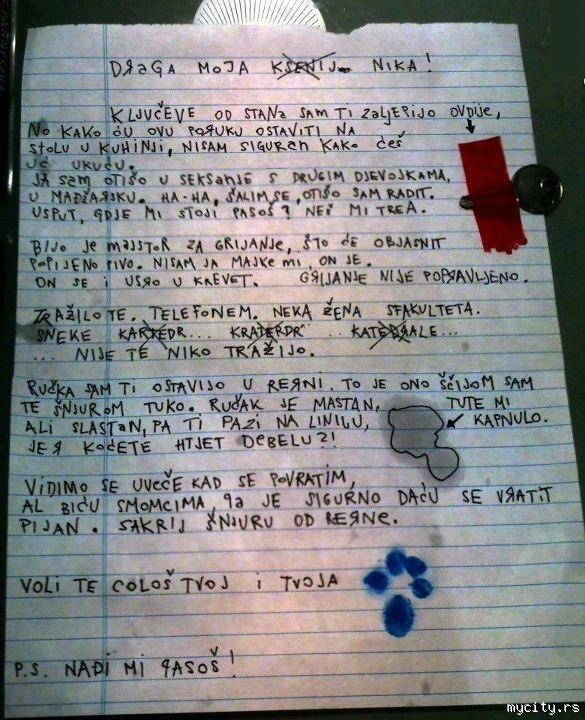 DRAGA MOJA KSENIJ NIKA!
KLJUČEVE OD STANA SAM TI ZALJEPIJO OVDIJE,
NO KAKO ĆU OVU PORUKU OSTAVITI NA
STOLU U KUHINJI, NISAM SIGUREN KAKO ĆEŠ
UĆ UKUĆU.
JA SAM OTIŠO U SEKSANJE S DRUGIM DJEVOJKAMA,
U MADŽARSKU. HA-HA, ŠALIM SE, OTIŠO SAM RADIT.
USPUT, GDJE MI STOJI PASOŠ? NEĆ MI TREA.
BIJO JE MAJSTOR ZA GRIJANJE, ŠTO ĆE OBJASNIT
POPIJENO PIVO. NISAM JA MAJKE MI, ON JE.
ON SE I USRO U KREVET. GRIJANJE NIJE POPRAVLJENO.
TRAŽILO TE. TELEFONEM. NEKA ŽENA SFAKULTETA.
SNEKE KARKEDR... KRATERDR... KATEDRALE...
... NIJE TE NIKO TRAŽIJO.
RUČKA SAM TI OSTAVIJO U RERNI. TO JE ONO ŠČIJOM SAM
TE ŠNJUROM TUKO. RUČAK JE MASTAN, TUTE MI
ALI SLASTAN, PA TI PAZI NA LINIJU, KAPNULO.
JER KOĆETE HTJET DEBELU?!
VIDIMO SE UVEČE KAD SE POVRATIM,
AL BIĆU SMOMCIMA, PA JE SIGURNO DAĆU SE VRATIT
PIJAN. SAKRIJ ŠNJURU OD RERNE.
VOLI TE COLOŠ TVOJ I TVOJA
P.S. NAĐI MI PASOŠ!
mycity.rs